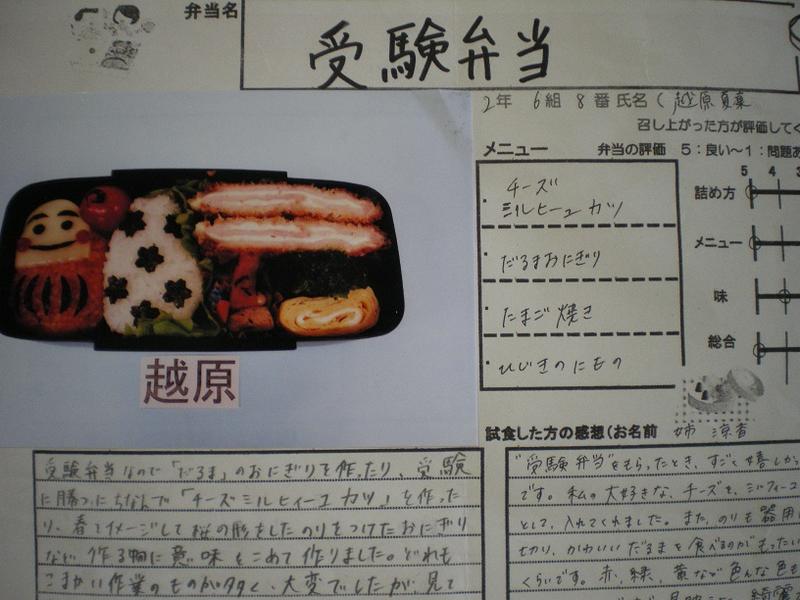 弁当名
受験弁当
2年 6組 8番 氏名(越原夏菜
召し上がった方が評価してく
メニュー 弁当の評価 5：良い～1：問題あ
5 4 3
チーズ
ミルヒーユ カツ
だるまおにぎり
たまご焼き
ひじきのにもの
詰め方
メニュー
味
総合
越原
受験弁当なので「だるま」のおにぎりを作ったり、受験
に勝つにちなんで「チーズミルヒィーユカツ」を作った
り、春てイメージして桜の形をしたのりをつけたおにぎり
など 作る物に意味をこめて作りました。どれも
こまかい作業のものが多く、大変でしたが、見て
試食した方の感想(お名前 姉 涼香
"受験弁当"をもらったとき、すごく嬉しかっ
です。私の大好きな、チーズを、ミルフィーユ
として、入れてくれました。また、のりも器用
切り、かわいいだるまを食べるのがもったい
くらいです。赤、緑、黄など色んな色も